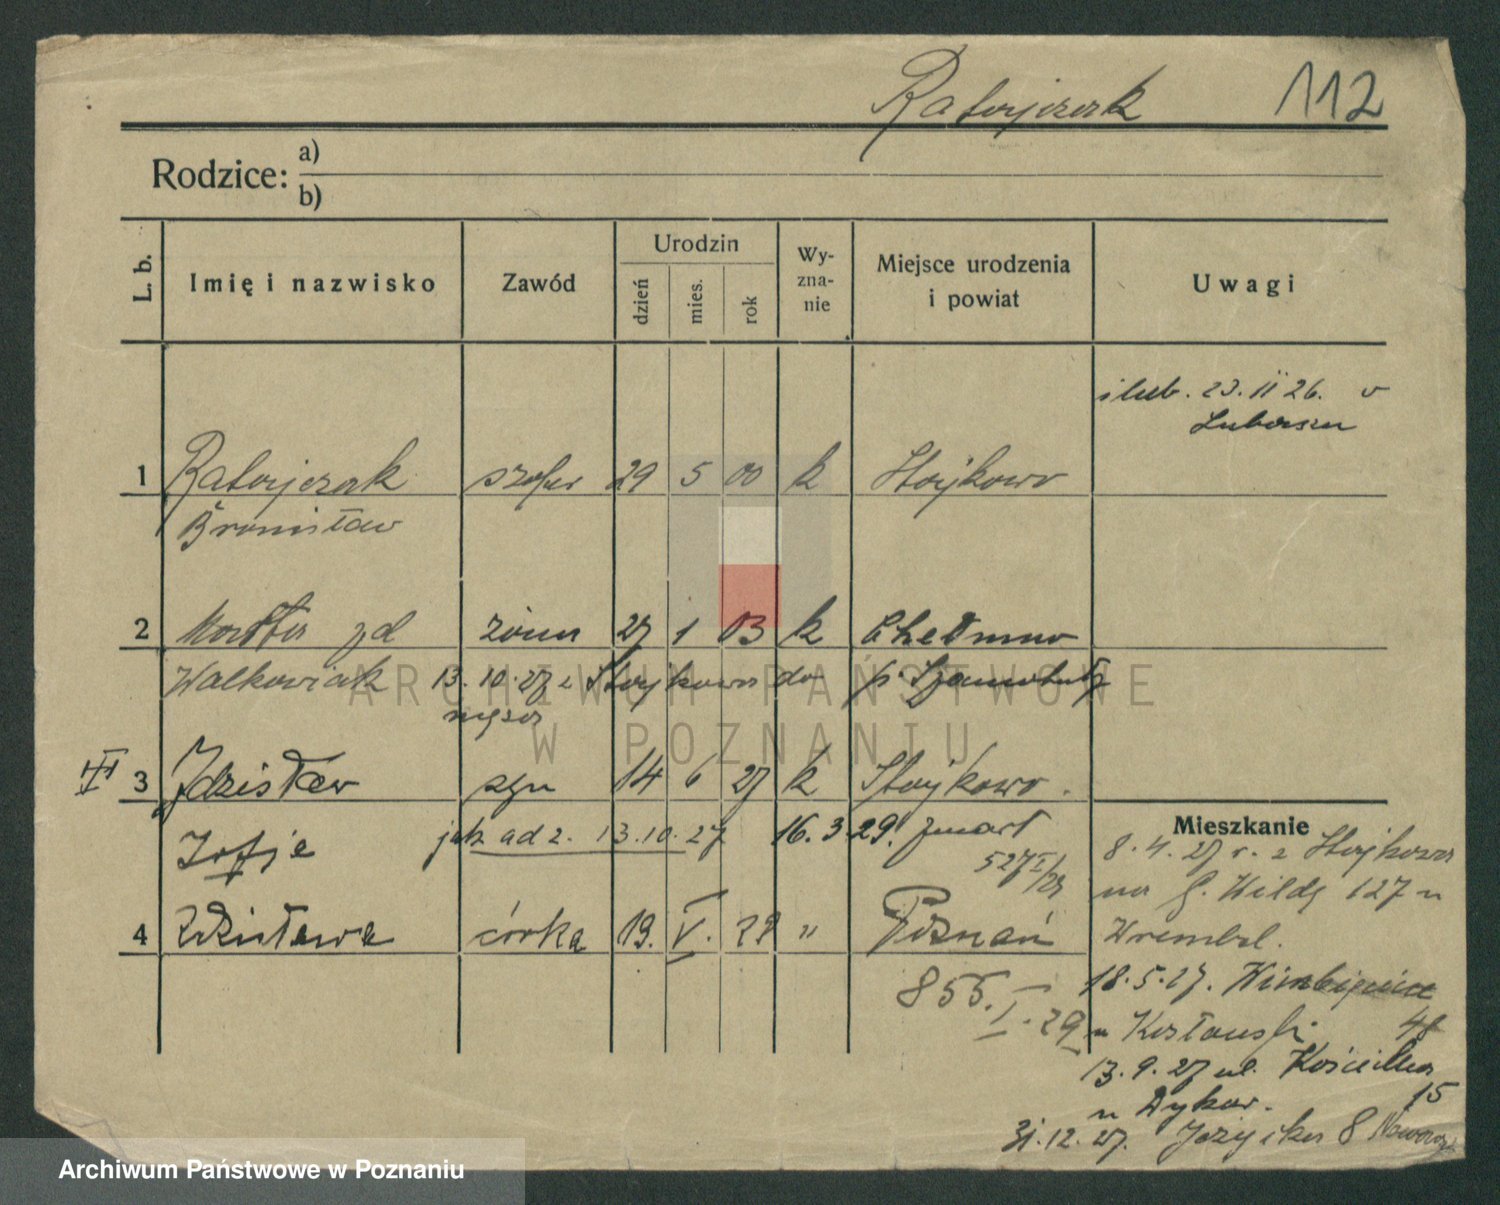 Ratajczak 112
Rodzice: a)
b)
L. b. Imię i nazwisko Zawód Urodzin dzień mies. rok Wy-zna-nie Miejsce urodzenia i powiat Uwagi
ślub. 23. II 26. w
Lubaszu
1 Ratajczak szofer 29 5 00 k Stajkowo
Bronisław
2 zd żona 27 1 03 k Chełmno
Walkowiak 13.10.27 z Stajkowa do p. Szamotuły
męża
ARCHIWUM PAŃSTWOWE
W POZNANIU
III 3 Zdzisław syn 14 6 27 k Stajkowo.
Zofja jak ad 2. 13.10.27 16.3.29. zmarł
527 I/29
4 Zdzisława córka 19. V. 29 " Poznań
855. I. 29
Mieszkanie
8.4.27 r. z Stajkowa
na G. Wildę 127 u
18.5.27.
u 48
13.9.27 ul. Kościelna
15
u
31.12.27. 8
Archiwum Państwowe w Poznaniu